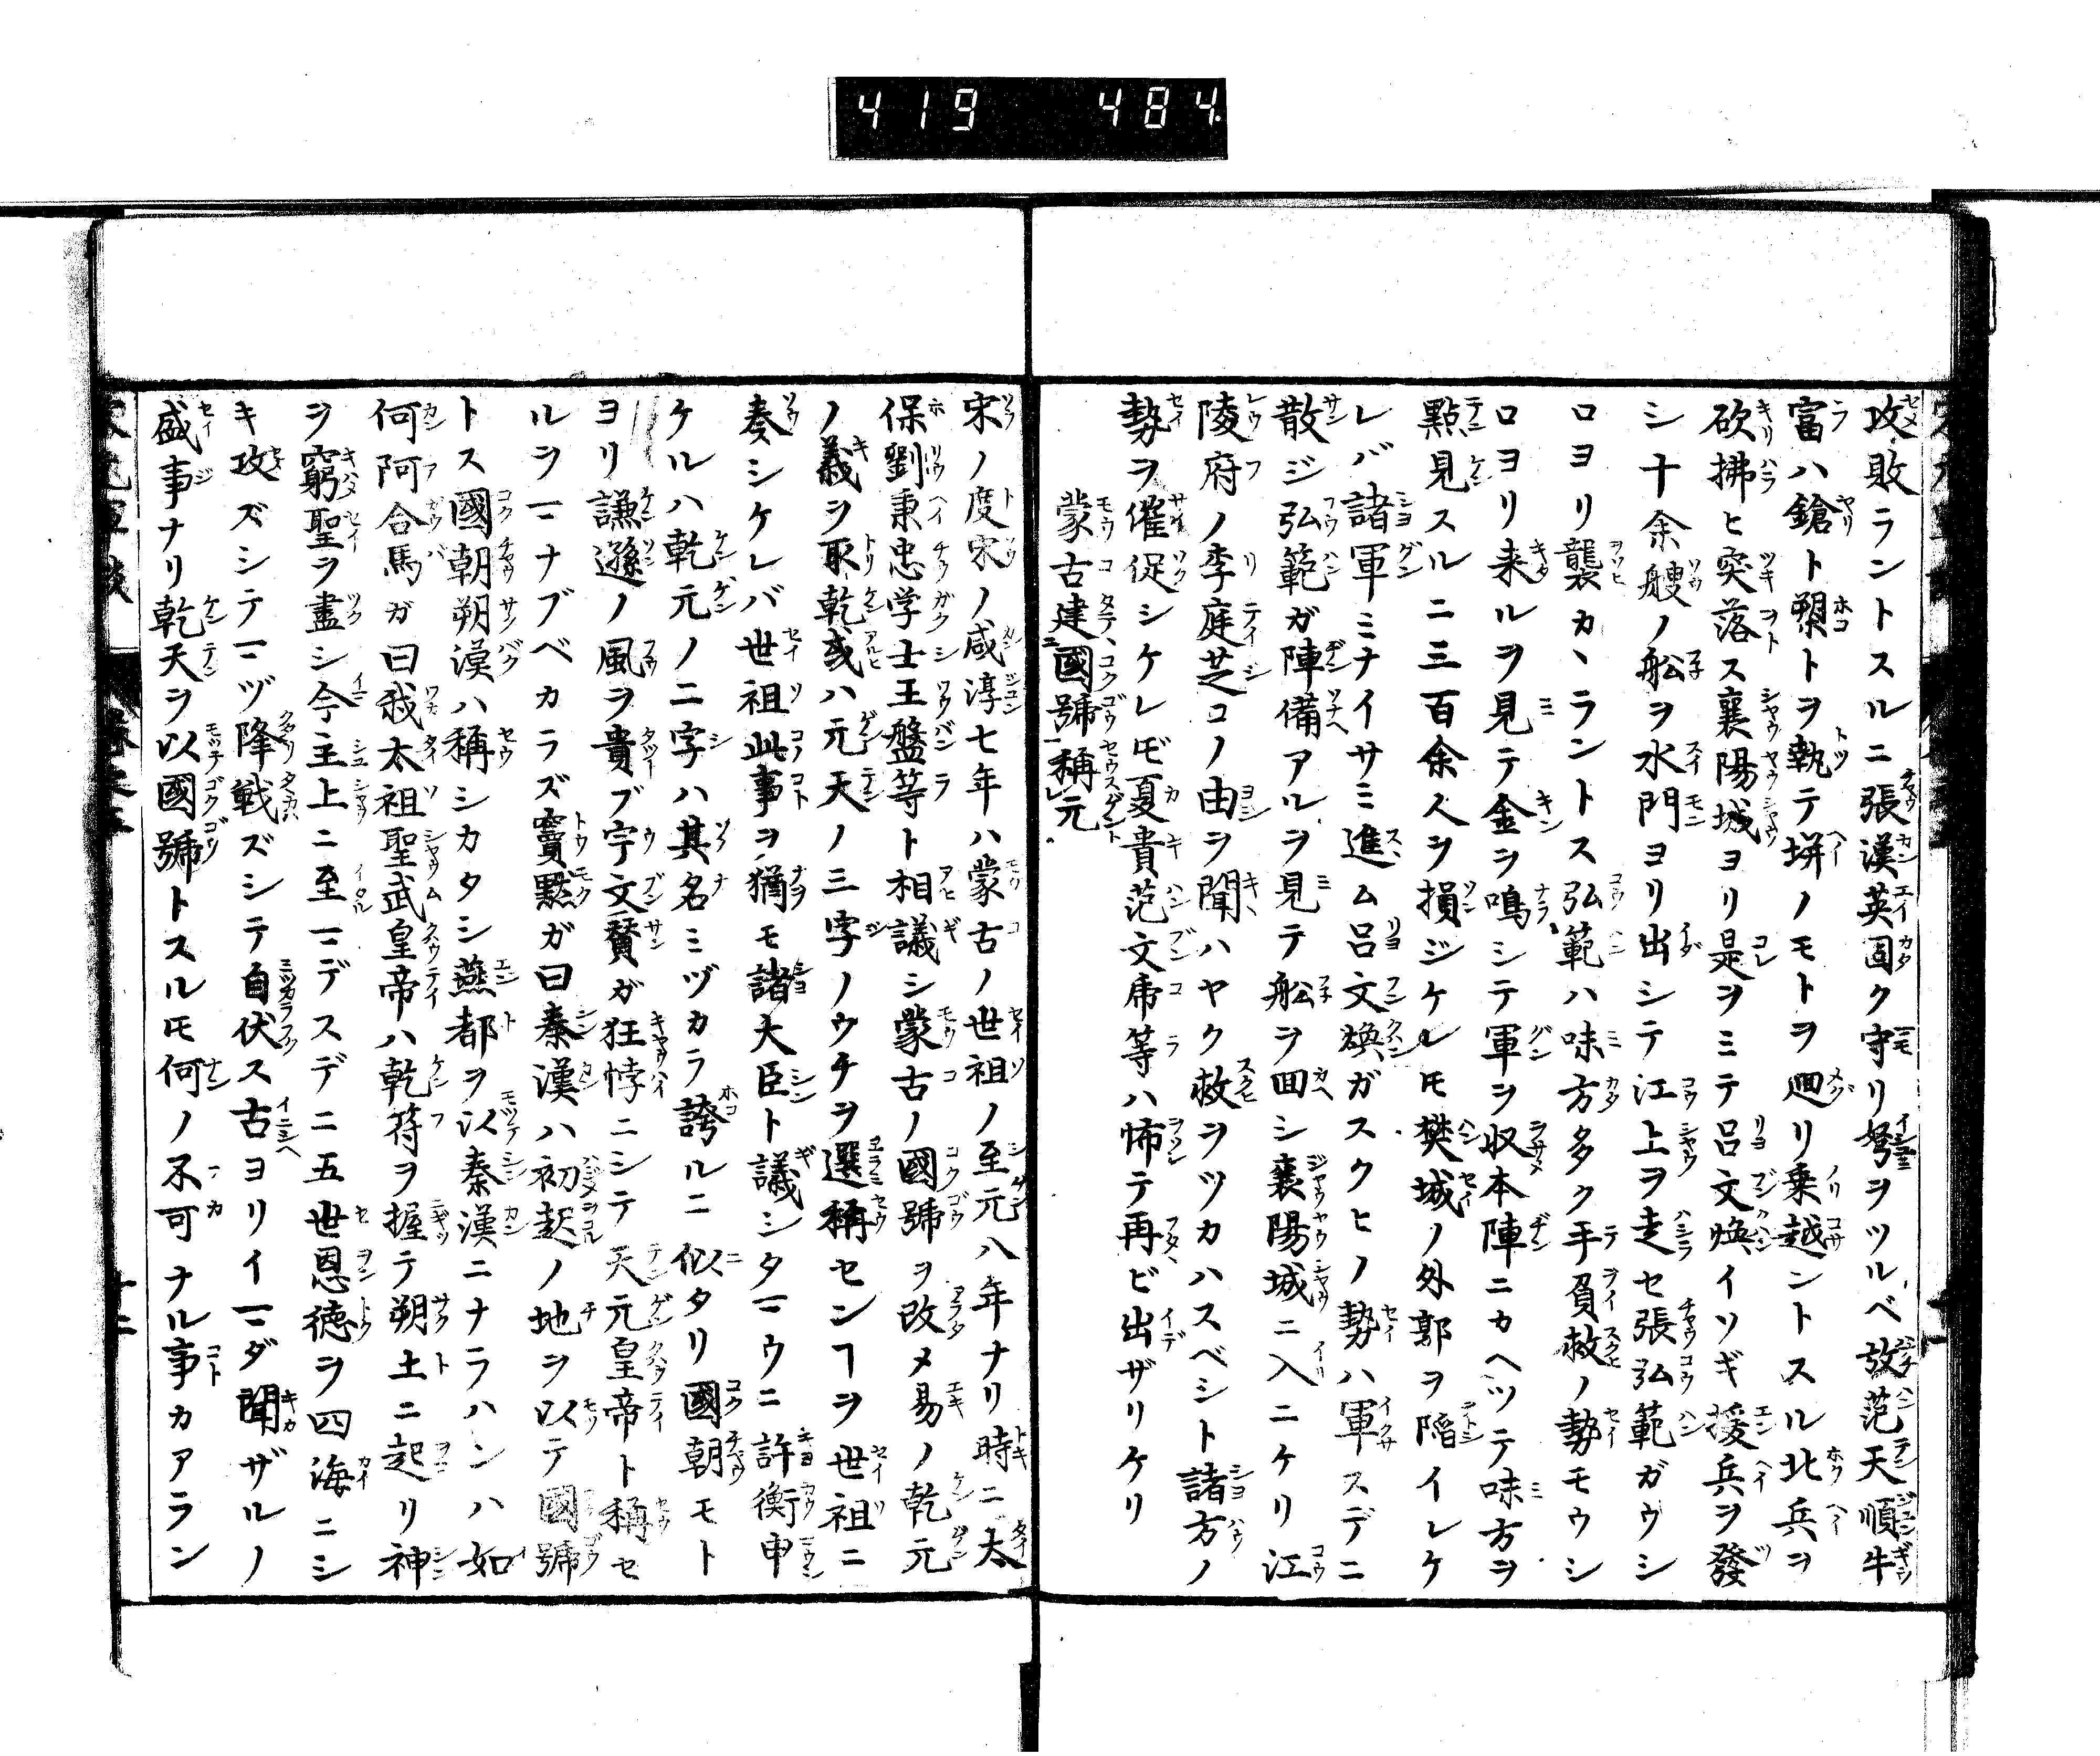 419 484
攻敗ラントスルニ張漢英固ク守リ弩ヲツルベ放范天順牛
富ハ鎗ト槊トヲ執テ塀ノモトヲ廻リ乗越ントスル北兵ヲ
砍拂ヒ突落ス襄陽城ヨリ是ヲミテ呂文煥イソギ援兵ヲ發
シ十余艘ノ舩ヲ水門ヨリ出シテ江上ヲ走セ張弘範ガウシ
ロヨリ襲カヽラントス弘範ハ味方多ク手負救ノ勢モウシ
ロヨリ来ルヲ見テ金ヲ鳴シテ軍ヲ収本陣ニカヘツテ味方ヲ
點見スルニ三百余人ヲ損ジケレㇳモ樊城ノ外郭ヲ陥イレケ
レバ諸軍ミナイサミ進ム呂文煥ガスクヒノ勢ハ軍スデニ
散ジ弘範ガ陣備アルヲ見テ舩ヲ回シ襄陽城ニ入ニケリ江
陵府ノ李庭芝コノ由ヲ聞ハヤク救ヲツカハスベシト諸方ノ
勢ヲ催促シケレㇳモ夏貴范文虎等ハ怖テ再ビ出ザリケリ
蒙古建國號稱元
宋ノ度宋ノ咸淳七年ハ蒙古ノ世祖ノ至元八年ナリ時ニ太
保劉秉忠学士王盤等ト相議シ蒙古ノ國號ヲ改メ易ノ乾元
ノ義ヲ取乾或ハ元天ノ三字ノウチヲ選稱センヿヲ世祖ニ
奏シケレバ世祖此事ヲ猶モ諸大臣ト議シタマウニ許衡申
ケルハ乾元ノ二字ハ其名ミヅカラ誇ルニ似タリ國朝モト
ヨリ謙遜ノ風ヲ貴ブ宇文贇ガ狂悖ニシテ天元皇帝ト稱セ
ルヲマナブベカラズ竇黙ガ曰秦漢ハ初起ノ地ヲ以テ國號
トス國朝朔漠ハ稱シカタシ燕都ヲ以秦漢ニナラハンハ如
何阿合馬ガ曰我太祖聖武皇帝ハ乾符ヲ握テ朔土ニ起リ神
ヲ窮聖ヲ盡シ今主上ニ至マデスデニ五世恩德ヲ四海ニシ
キ攻ズシテマヅ降戦ズシテ自伏ス古ヨリイマダ聞ザルノ
盛事ナリ乾天ヲ以國號トスルㇳモ何ノ不可ナル事カアラン